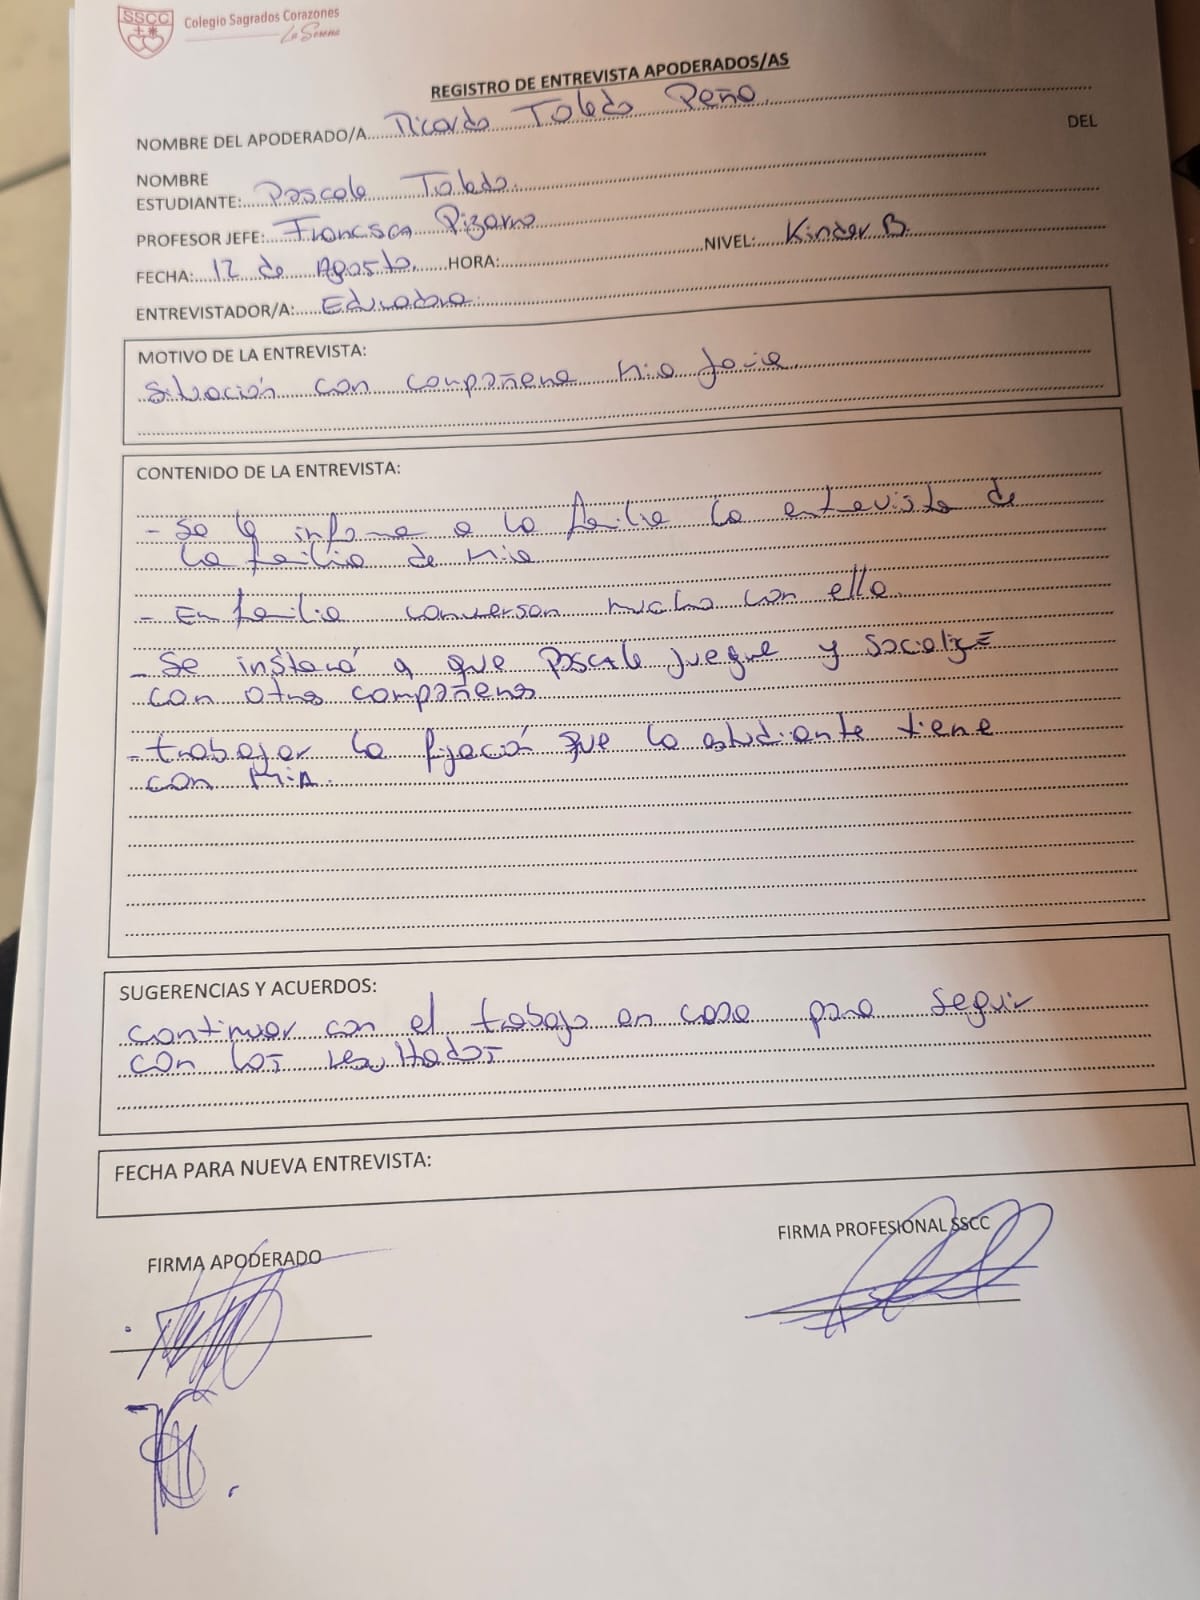 SSCC
Colegio Sagrados Corazones
La Serena
REGISTRO DE ENTREVISTA APODERADOS/AS
NOMBRE DEL APODERADO/A Ricardo Toledo Peña
DEL
NOMBRE
ESTUDIANTE: Pascale Toledo.
PROFESOR JEFE: Francisca Pizarro
FECHA: 12 de Agosto. HORA: NIVEL: Kinder B.
ENTREVISTADOR/A: Educadora.
MOTIVO DE LA ENTREVISTA:
Situación con compañera Mia
CONTENIDO DE LA ENTREVISTA:
- Se le informa a la familia la entrevista de
la familia de Mia
- En familia conversan mucho con ella.
- Se instará a que Pascale juegue y socialize
con otros compañeros
- trabajar la fijación que la estudiante tiene
con Mia.
SUGERENCIAS Y ACUERDOS:
continuar con el trabajo en casa para seguir
con los resultados
FECHA PARA NUEVA ENTREVISTA:
FIRMA APODERADO
FIRMA PROFESIONAL SSCC